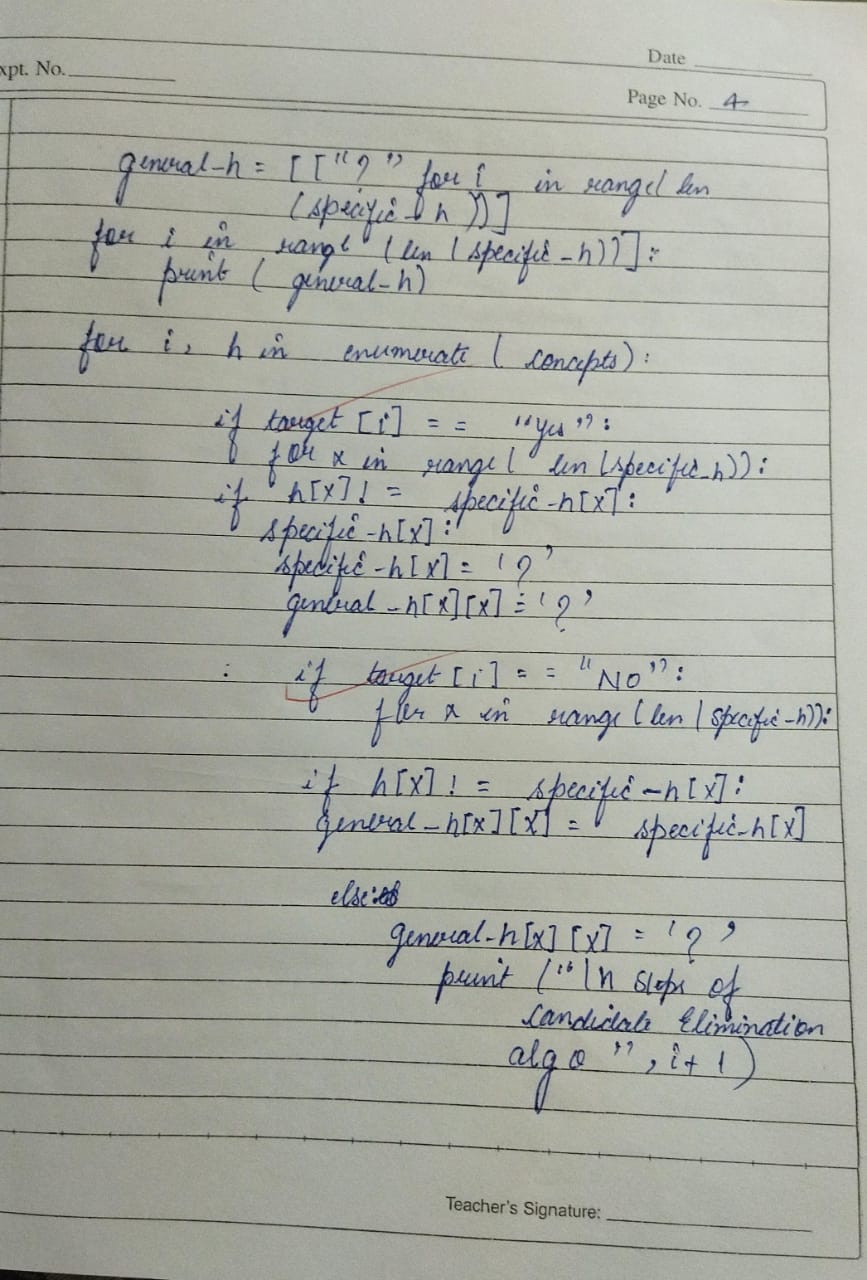 Date
xpt. No.
Page No. 4
general-h = [["?" for i in range( len
(specific-h))]
for i in range (len (specific-h))]:
print ( general-h)
for i, h in enumerate ( concepts):
if target [i] = = "Yes":
for x in range( len (specific-h)):
if h[x] ! = specific-h[x]:
specific-h[x]:
specific-h[x] = '?'
general-h[x][x] = '?'
: if target [i] = = "NO":
for x in range (len (specific-h)):
if h[x] ! = specific-h[x]:
general-h[x][x] = specific-h[x]
else:
general-h[x][x] = '?'
print ("\n Steps of
Candidate Elimination
algo", i+1)
Teacher's Signature: